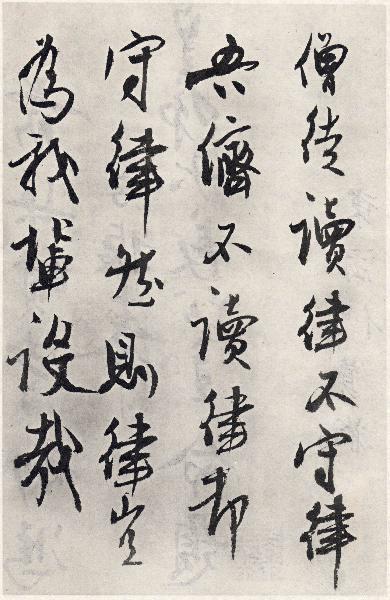 僧徒讀律不守律
吾儕不讀律却
守律然則律豈
為我輩設哉